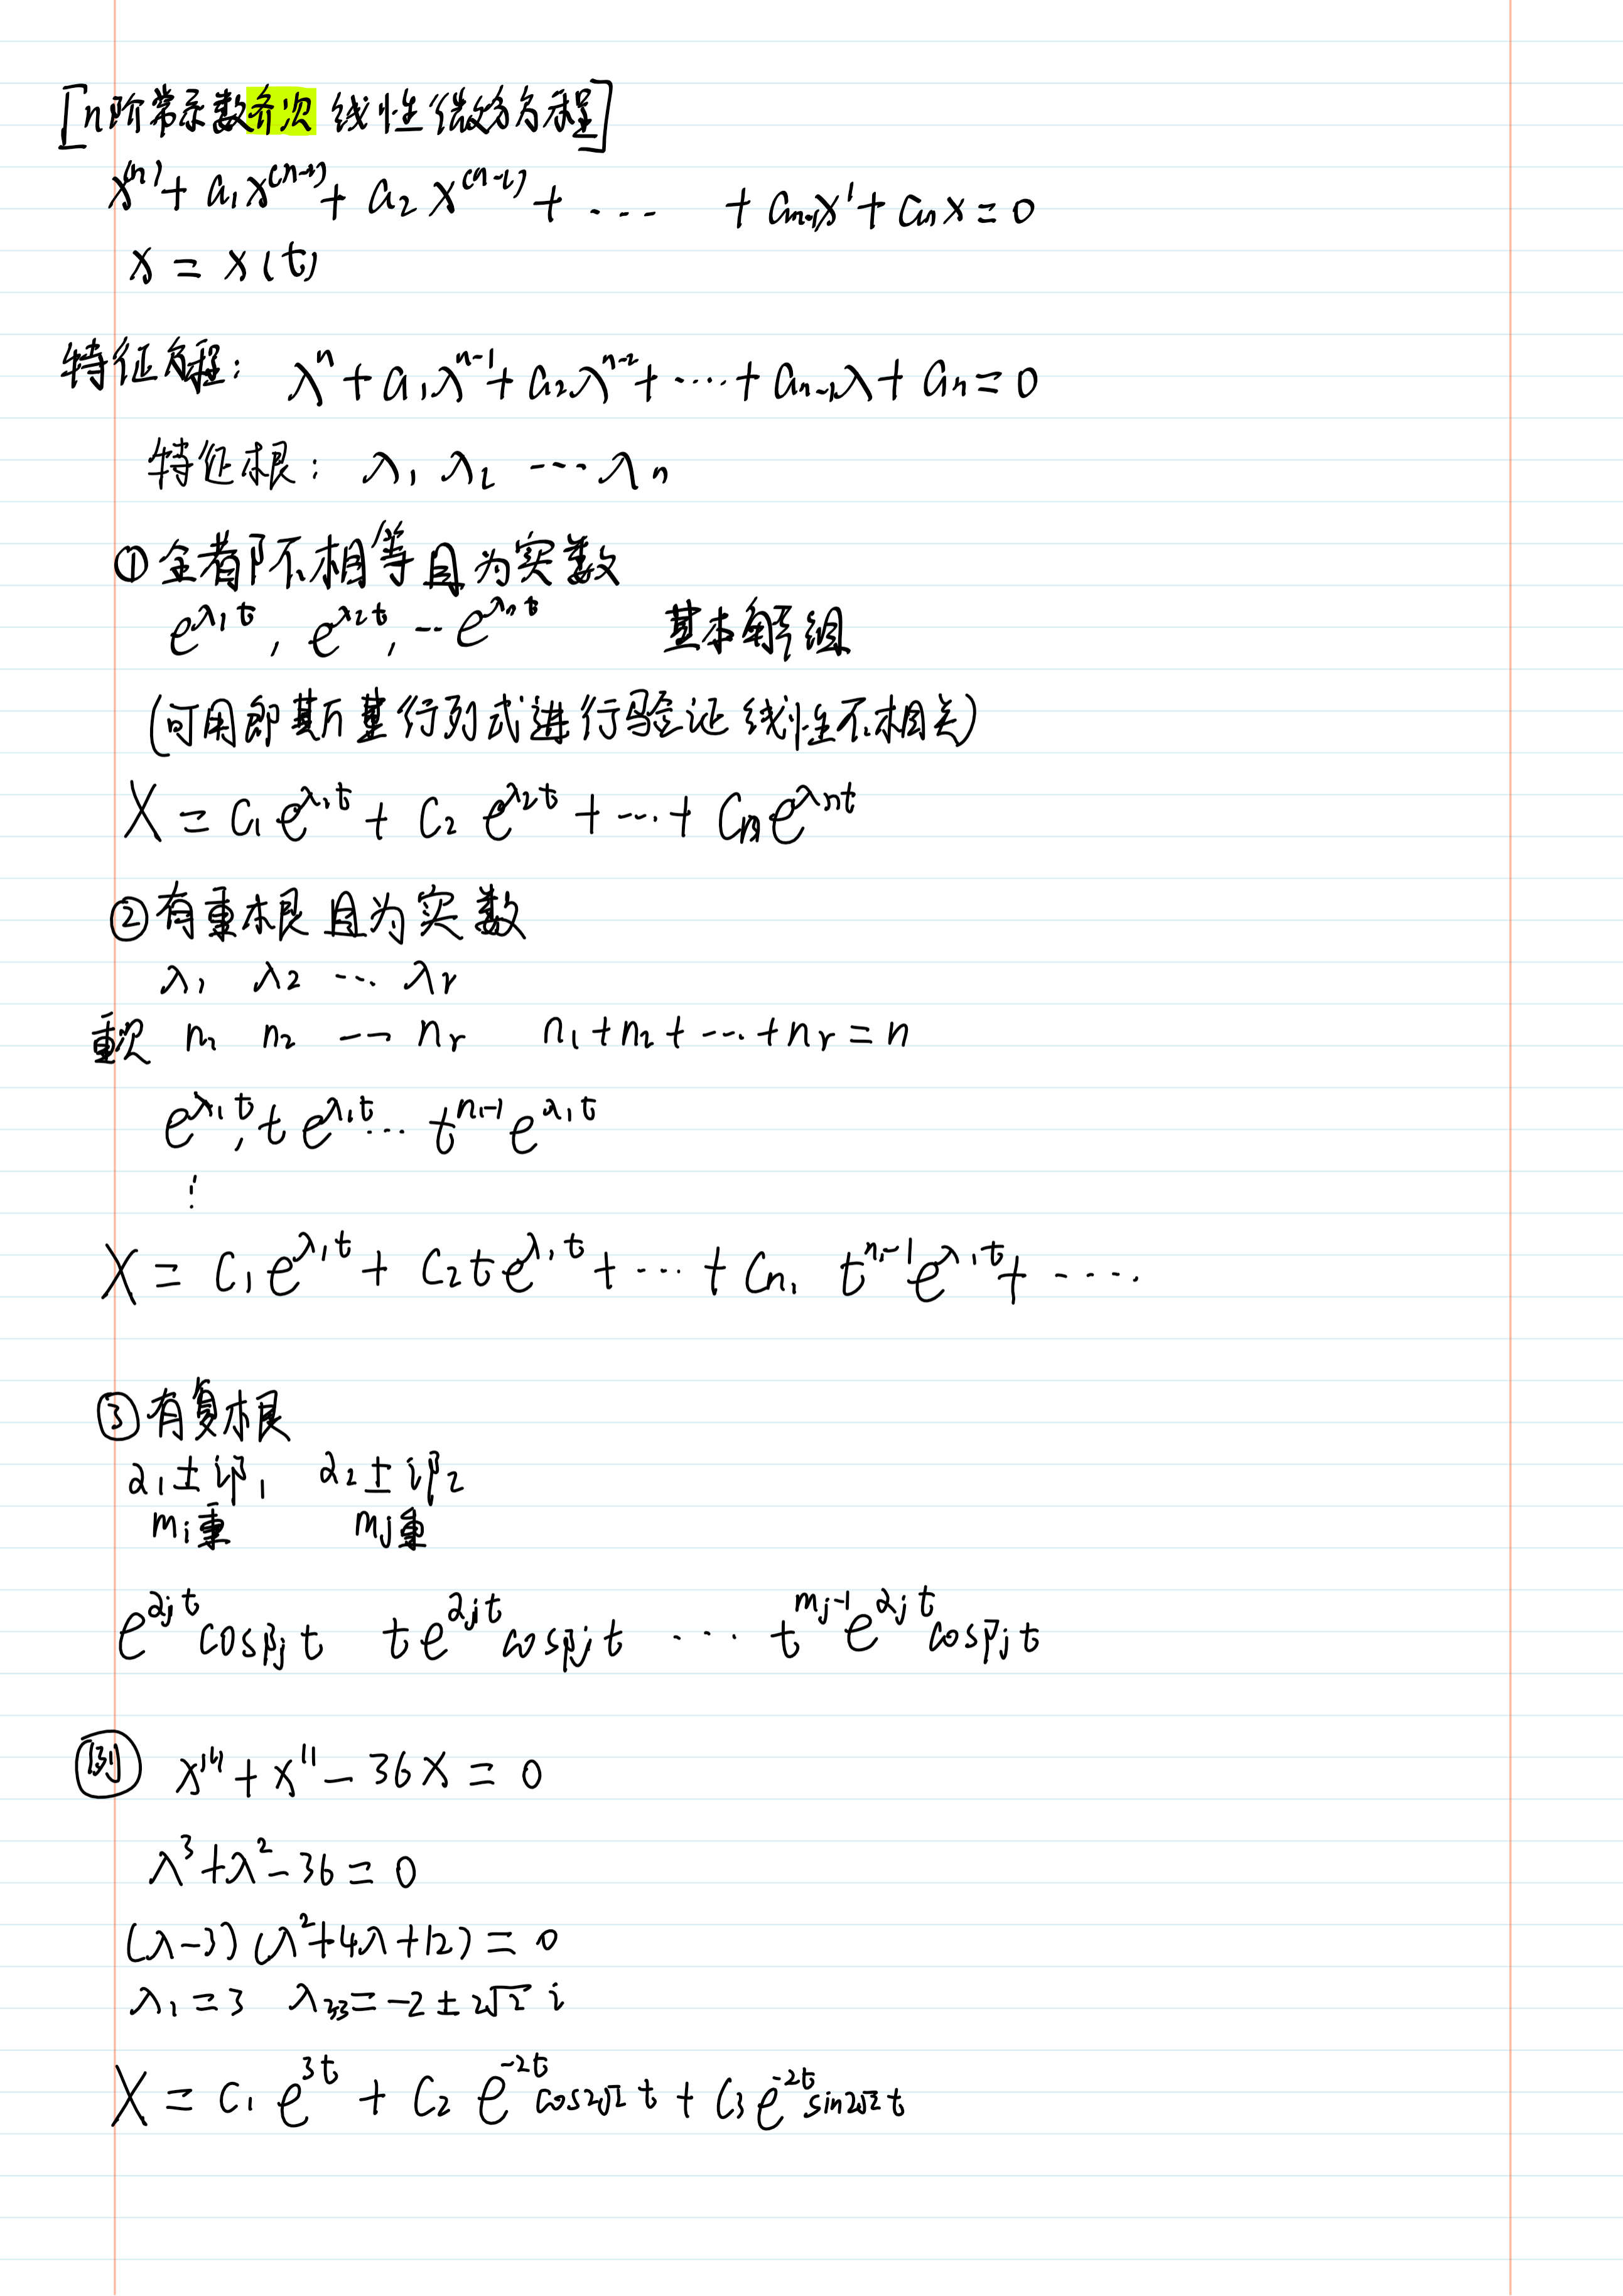 [n阶常系数齐次线性微分方程]
x⁽ⁿ⁾ + a₁x⁽ⁿ⁻¹⁾ + a₂x⁽ⁿ⁻²⁾ + ... + aₙ₋₁x' + aₙx = 0
x = x(t)
特征方程: λⁿ + a₁λⁿ⁻¹ + a₂λⁿ⁻² + ... + aₙ₋₁λ + aₙ = 0
特征根: λ₁ λ₂ ... λₙ
① 全都不相等且为实数
e^{λ₁t}, e^{λ₂t}, ... e^{λₙt} 基本解组
(可用郎斯基行列式进行验证线性不相关)
X = C₁e^{λ₁t} + C₂e^{λ₂t} + ... + Cₙe^{λₙt}
② 有重根且为实数
λ₁ λ₂ ... λᵣ
重次 n₁ n₂ ... nᵣ n₁+n₂+...+nᵣ = n
e^{λ₁t}, te^{λ₁t} ... t^{n₁-1}e^{λ₁t}
⋮
X = C₁e^{λ₁t} + C₂te^{λ₁t} + ... + C_{n₁} t^{n₁-1}e^{λ₁t} + ....
③ 有复根
α₁±iβ₁ α₂±iβ₂
mᵢ重 mⱼ重
e^{αⱼt}cosβⱼt te^{αⱼt}cosβⱼt ... t^{mⱼ-1}e^{αⱼt}cosβⱼt
例 x''' + x'' - 36x = 0
λ³+λ²-36 = 0
(λ-3)(λ²+4λ+12) = 0
λ₁ = 3 λ₂,₃ = -2 ± 2√2 i
X = C₁e^{3t} + C₂e^{-2t}cos2√2 t + C₃e^{-2t}sin2√2 t